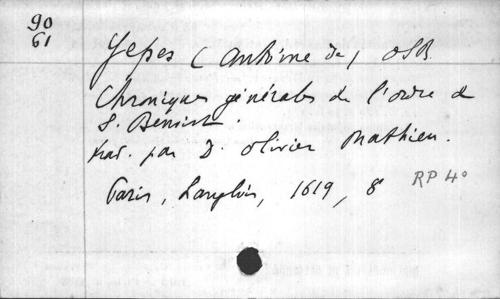 90
61
Yepes (Antoine de) OSB.
Chroniques générales de l'ordre de
S. Benoist.
trad. par D. Olivier Mathieu.
Paris, Langlois, 1619, 8°
RP 4°